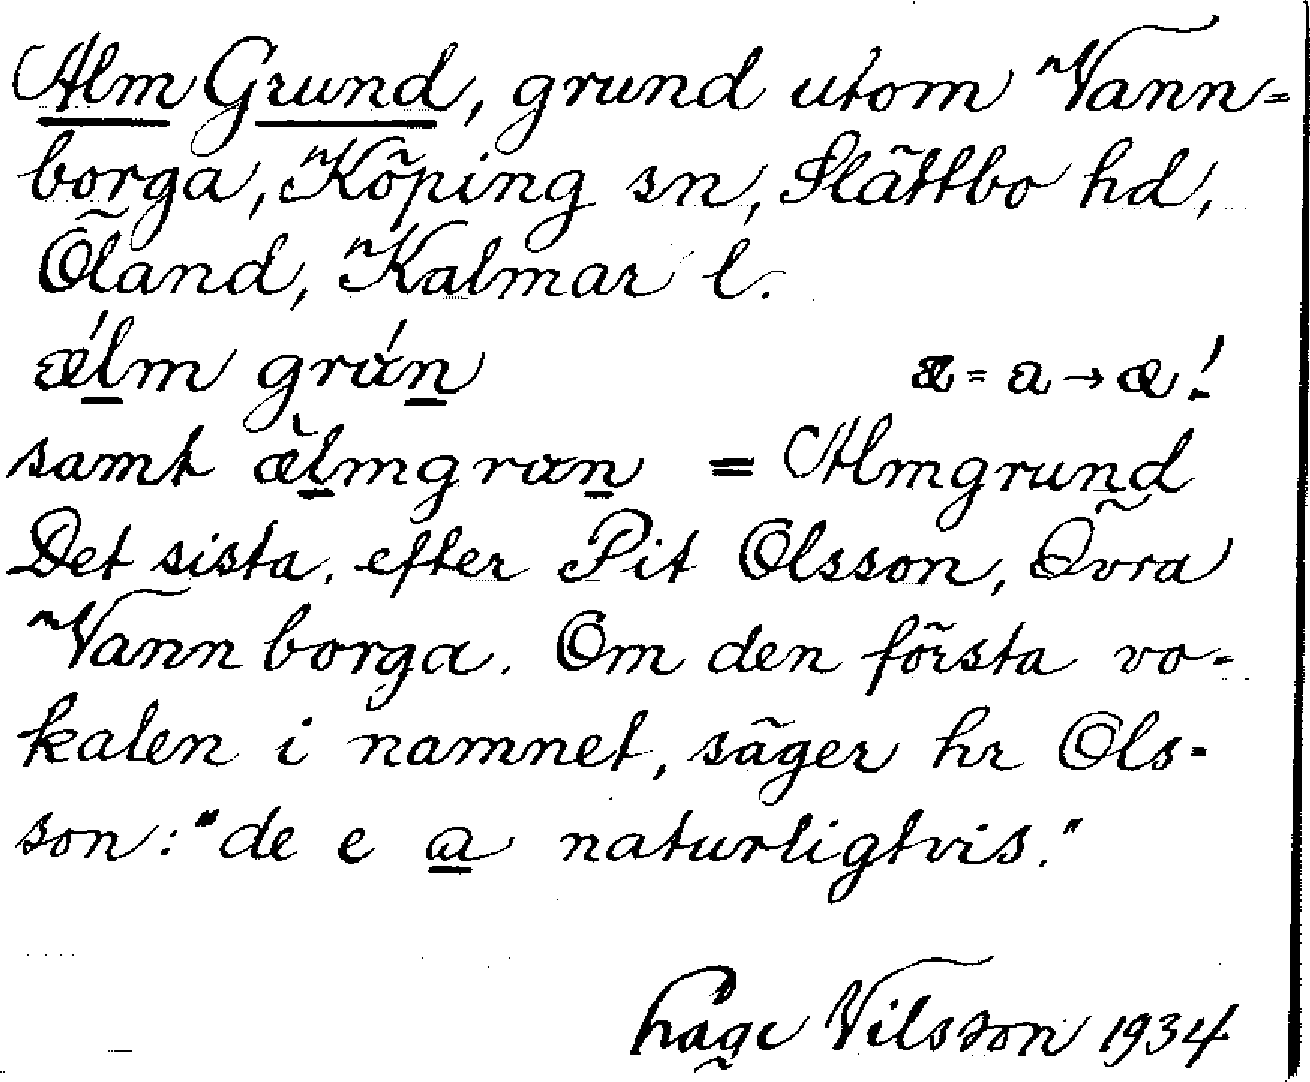 Alm Grund, grund utom Vann=
borga, Köping sn, Slättbo hd,
Öland, Kalmar l.
ælm grɑn æ = a → æ!
samt ælmgrɑn = Almgrund
Det sista efter Pit Olsson, Övra
Vannborga. Om den första vo-
kalen i namnet, säger hr Ols-
son: "de e a naturligtvis."
Nilsson 1934